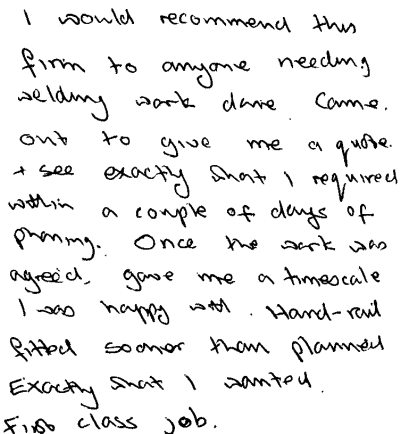 I would recommend this
firm to anyone needing
welding work done. Came.
out to give me a quote.
+ see exactly what I required
within a couple of days of
phoning. Once the work was
agreed, gave me a timescale
I was happy with. Hand-rail
fitted sooner than planned
Exactly what I wanted.
First class job.